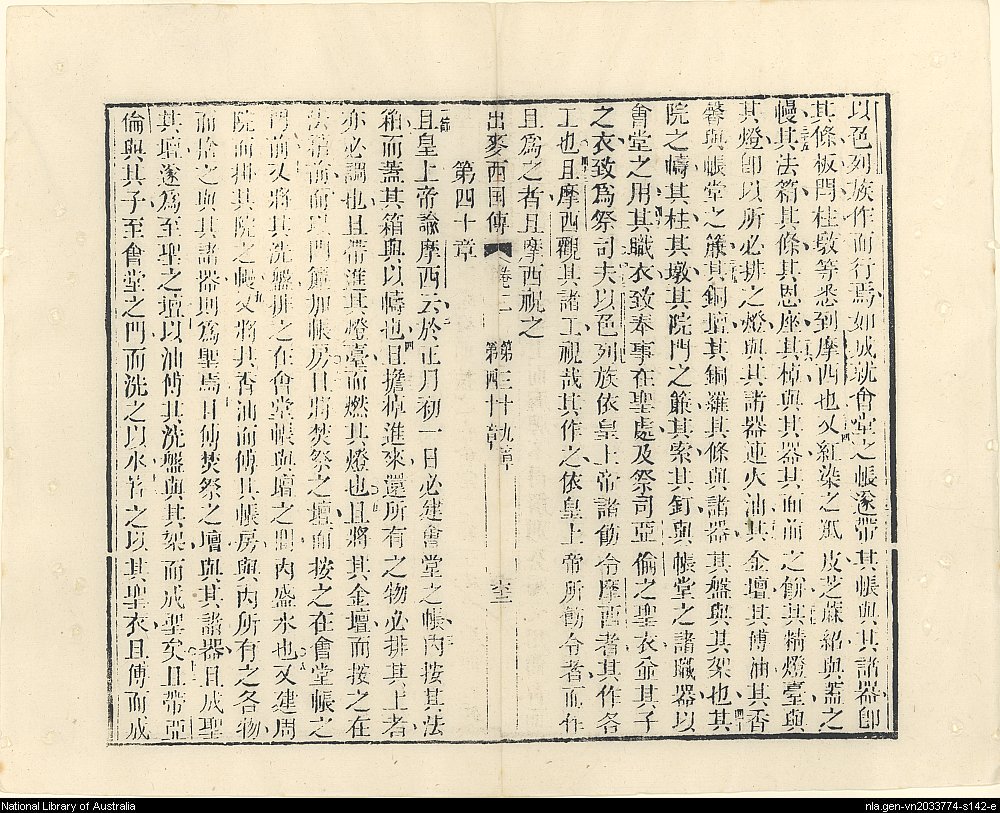 以色列族作而行焉如成就會堂之帳遂帶其帳與其諸器即
其條板閂柱敦等悉到摩西也又紅染之羝皮芝蔴紹與蓋之
幔其法箱其條其恩座其棹與其器其面前之餅其精燈臺與
其燈即以所必排之燈與其諸器連火油其金壇其傅油其香
馨與帳堂之簾其銅壇其銅羅其條與諸器其盤與其架也其
院之幬其柱其墩其院門之簾其索其釘與帳堂之諸職器以
會堂之用其職衣致奉事在聖處及祭司亞倫之聖衣並其子
之衣致爲祭司夫以色列族依皇上帝諸勅令摩西者其作各
工也且摩西觀其諸工視哉其作之依皇上帝所勅令者而作
且爲之者且摩西視之
出麥西国傳 卷二 第三十九章 第四十章
第四十章
且皇上帝諭摩西云於正月初一日必建會堂之帳內按其法
箱而蓋其箱與以幬也且擔棹進來還所有之物必排其上者
亦必調也且帶進其燈臺而燃其燈也且將其金壇而按之在
法箱前而以門簾加帳房且將焚祭之壇而按之在會堂帳之
門前又將其洗盤排之在會堂帳與壇之間內盛水也又建周
院而排其院之幔又將其香油而傅其帳房與內所有之各物
而捨之與其諸器則爲聖焉且傅焚祭之壇與其諸器且成聖
其壇遂爲至聖之壇以油傅其洗盤與其架而成聖矣且帶亞
倫與其子至會堂之門而洗之以水著之以其聖衣且傅而成
National Library of Australia
nla.gen-vn2033774-s142-e